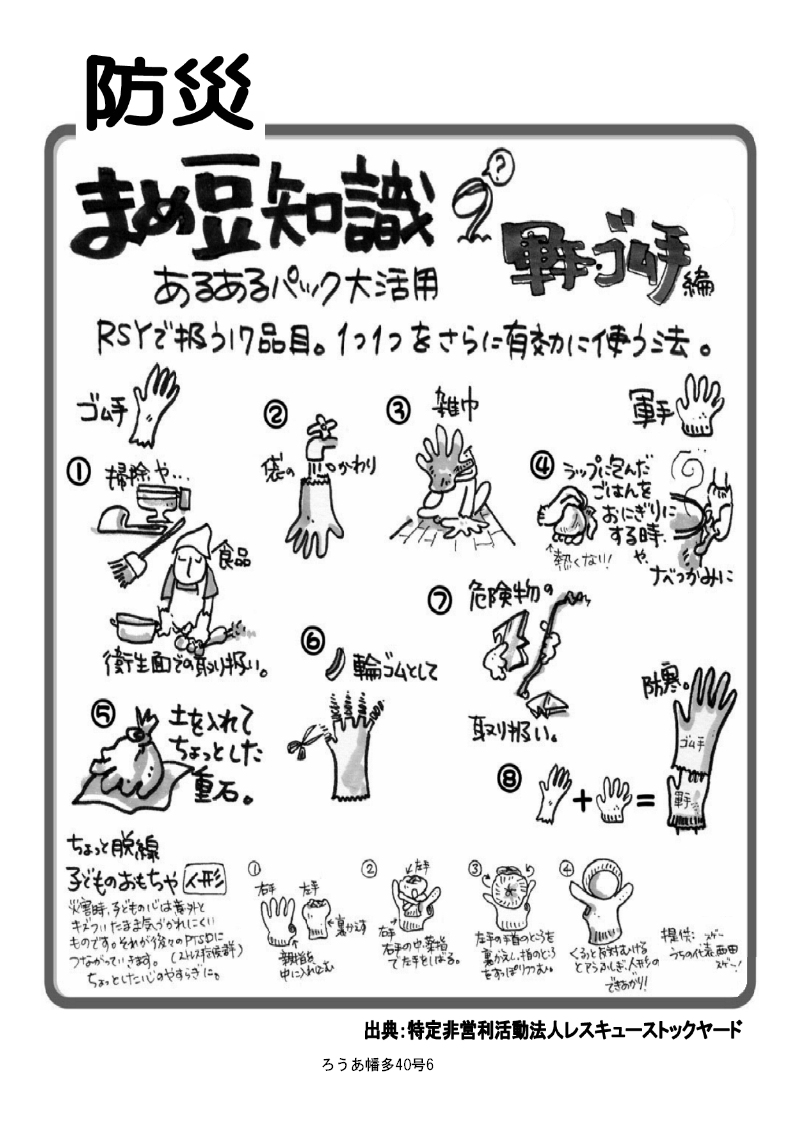 防災
まめ豆知識 9
?
軍手・ゴム手編
あるあるパック大活用
RSYで扱う17品目。1つ1つをさらに有効に使う法。
ゴム手
① 掃除や…
食品
衛生面での取り扱い。
② 袋のかわり
③ 雑巾
軍手
④ ラップに包んだ
ごはんを
おにぎりに
する時.
や、
なべつかみに
↑熱くない!
⑤ 土を入れて
ちょっとした
重石。
⑥ 輪ゴムとして
⑦ 危険物の
取り扱い。
防寒。
ゴム手
軍手
⑧ + =
ちょっと脱線
子どものおもちゃ 人形
災害時、子どもの心は意外と
キズついたまま気づかれにくい
ものです。それが後々のPTSDに
つながっていきます。
ちょっとした心のやすらぎに。
① 右手 左手
←裏かえす
親指を
中に入れこむ
② 左手
右手
右手の中・薬指
で左手をしばる。
③
左手の手首のところを
裏がえし、指のところ
をすっぽりつつむ。
④
くるっと反対むける
とアラふしぎ、人形の
できあがり!
提供:
うちの代表西田
出典:特定非営利活動法人レスキューストックヤード
ろうあ幡多40号6